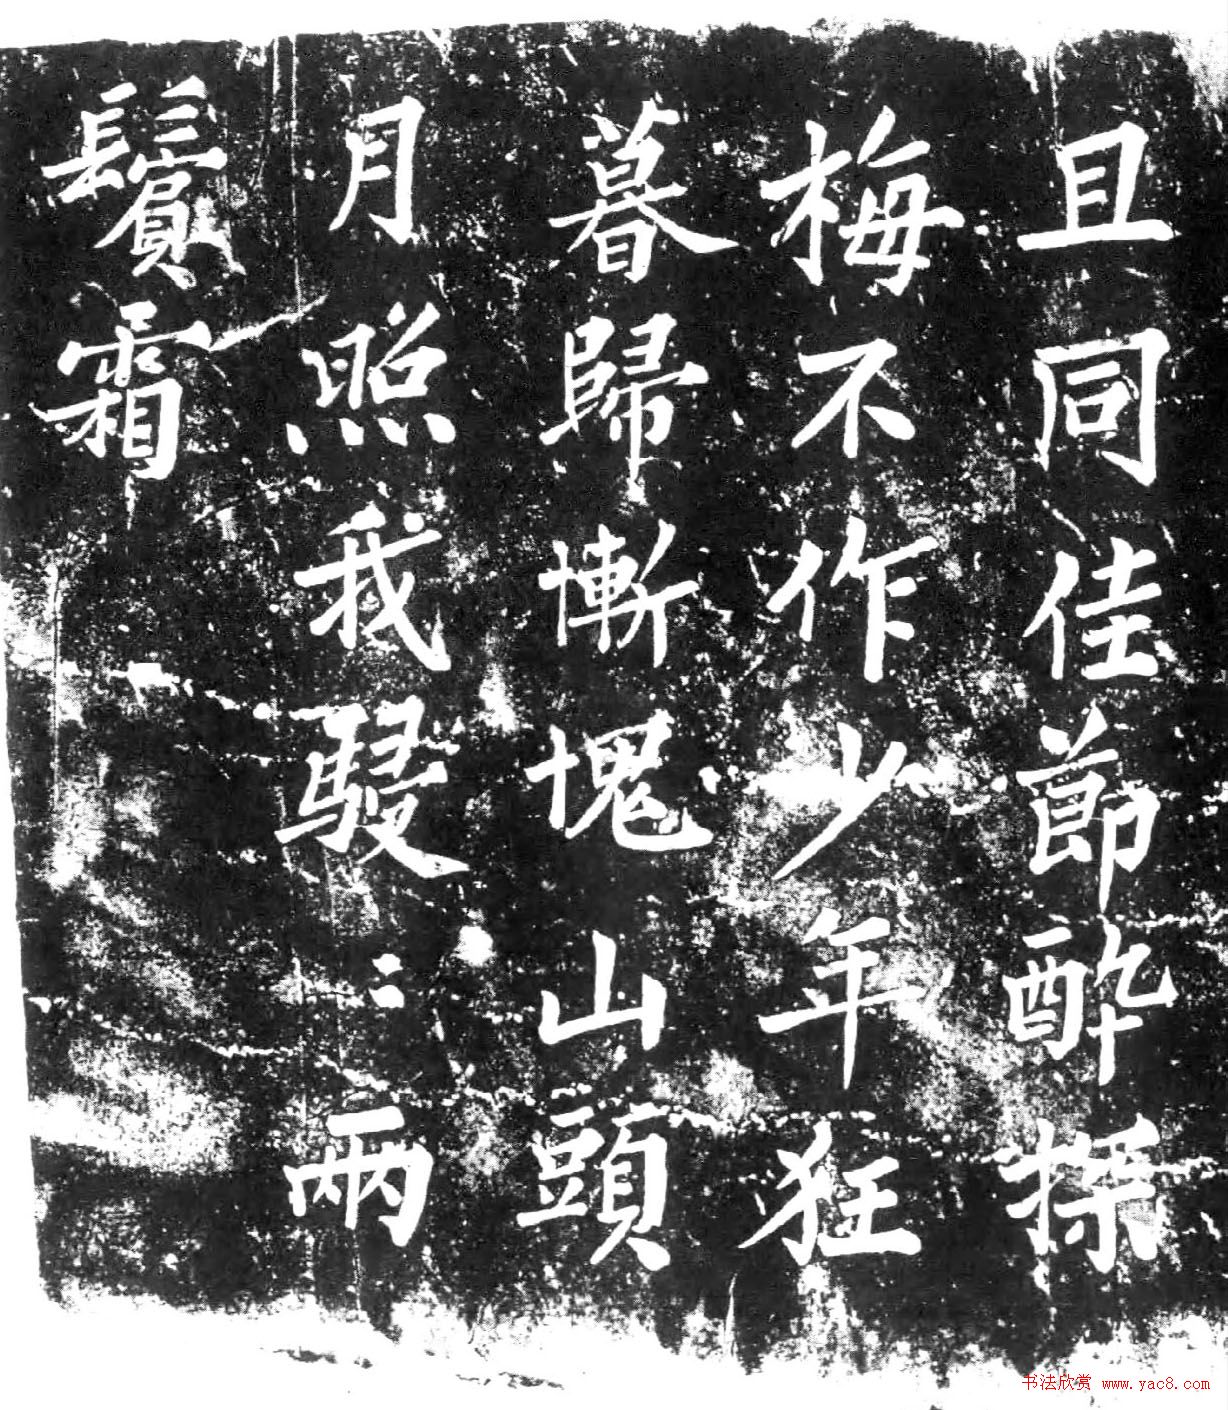 且同佳節醉探
梅不作少年狂
暮歸慚愧山頭
月照我駸〻兩
鬢霜
书法欣赏 www.yac8.com